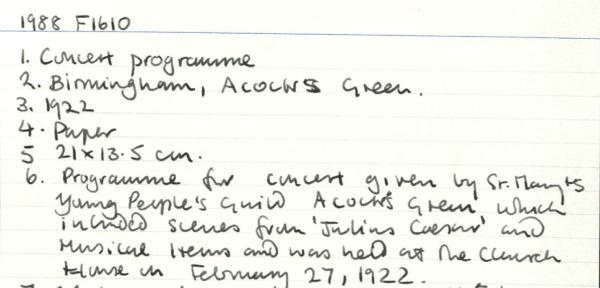 1988 F1610
1. Concert programme
2. Birmingham, Acocks Green.
3. 1922
4. Paper
5 21 x 13.5 cm.
6. Programme for concert given by St. Mary's
Young People's Guild Acocks Green, which
included scenes from 'Julius Caesar' and
Musical Items and was held at the Church
House on February 27, 1922.